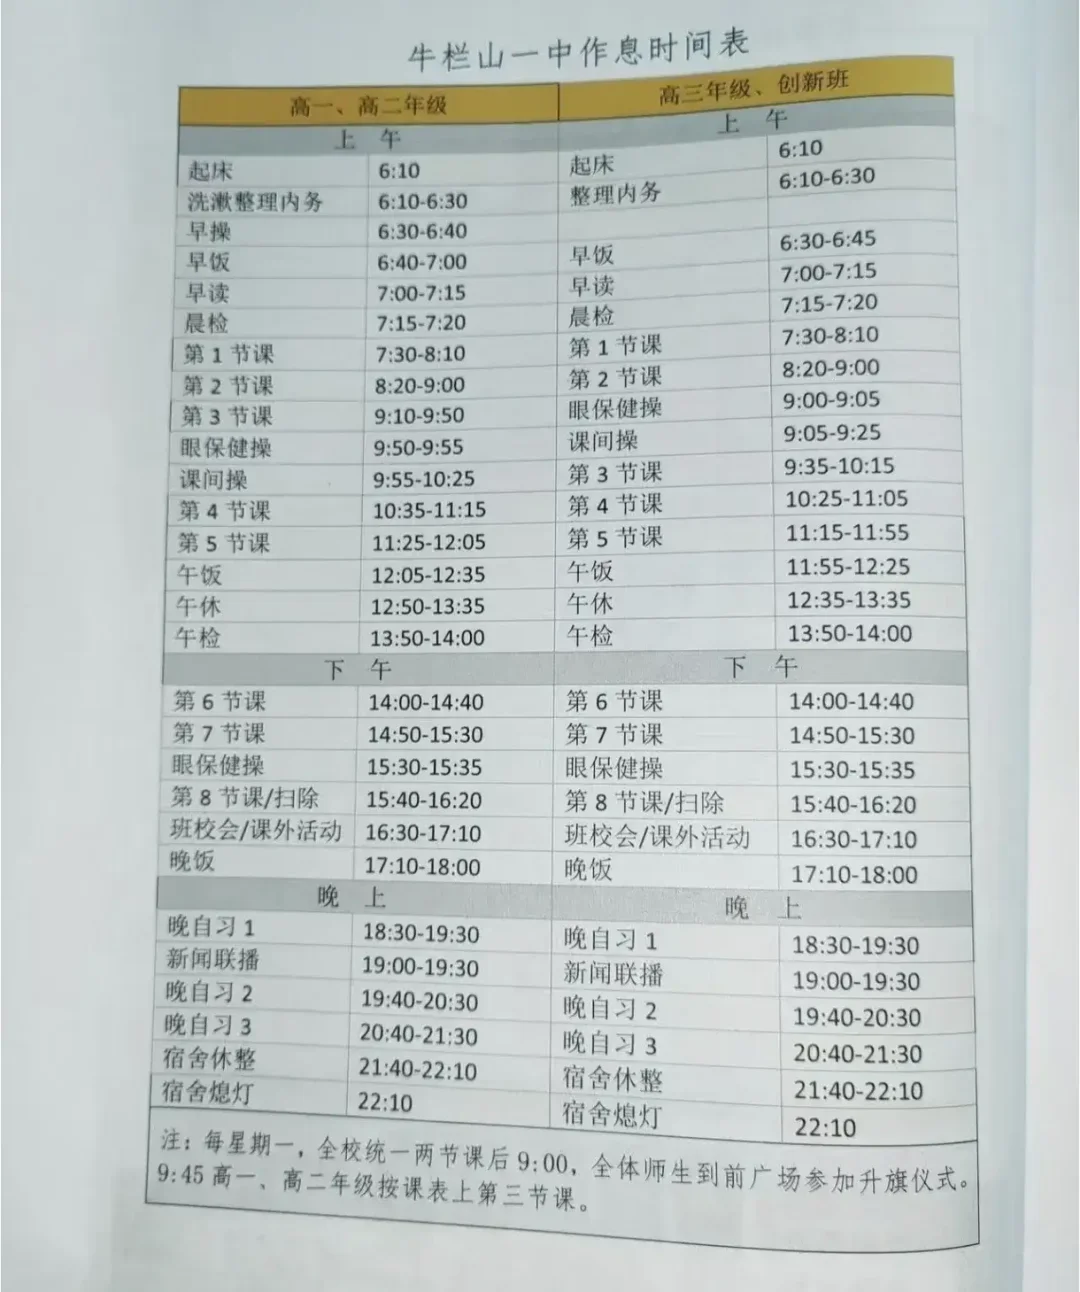 牛栏山一中作息时间表
高一、高二年级 高三年级、创新班
上 午 上 午
起床 6:10 起床 6:10
洗漱整理内务 6:10-6:30 整理内务 6:10-6:30
早操 6:30-6:40
早饭 6:40-7:00 早饭 6:30-6:45
早读 7:00-7:15 早读 7:00-7:15
晨检 7:15-7:20 晨检 7:15-7:20
第 1 节课 7:30-8:10 第 1 节课 7:30-8:10
第 2 节课 8:20-9:00 第 2 节课 8:20-9:00
第 3 节课 9:10-9:50 眼保健操 9:00-9:05
眼保健操 9:50-9:55 课间操 9:05-9:25
课间操 9:55-10:25 第 3 节课 9:35-10:15
第 4 节课 10:35-11:15 第 4 节课 10:25-11:05
第 5 节课 11:25-12:05 第 5 节课 11:15-11:55
午饭 12:05-12:35 午饭 11:55-12:25
午休 12:50-13:35 午休 12:35-13:35
午检 13:50-14:00 午检 13:50-14:00
下 午 下 午
第 6 节课 14:00-14:40 第 6 节课 14:00-14:40
第 7 节课 14:50-15:30 第 7 节课 14:50-15:30
眼保健操 15:30-15:35 眼保健操 15:30-15:35
第 8 节课/扫除 15:40-16:20 第 8 节课/扫除 15:40-16:20
班校会/课外活动 16:30-17:10 班校会/课外活动 16:30-17:10
晚饭 17:10-18:00 晚饭 17:10-18:00
晚 上 晚 上
晚自习 1 18:30-19:30 晚自习 1 18:30-19:30
新闻联播 19:00-19:30 新闻联播 19:00-19:30
晚自习 2 19:40-20:30 晚自习 2 19:40-20:30
晚自习 3 20:40-21:30 晚自习 3 20:40-21:30
宿舍休整 21:40-22:10 宿舍休整 21:40-22:10
宿舍熄灯 22:10 宿舍熄灯 22:10
注：每星期一，全校统一两节课后 9:00，全体师生到前广场参加升旗仪式。
9:45 高一、高二年级按课表上第三节课。